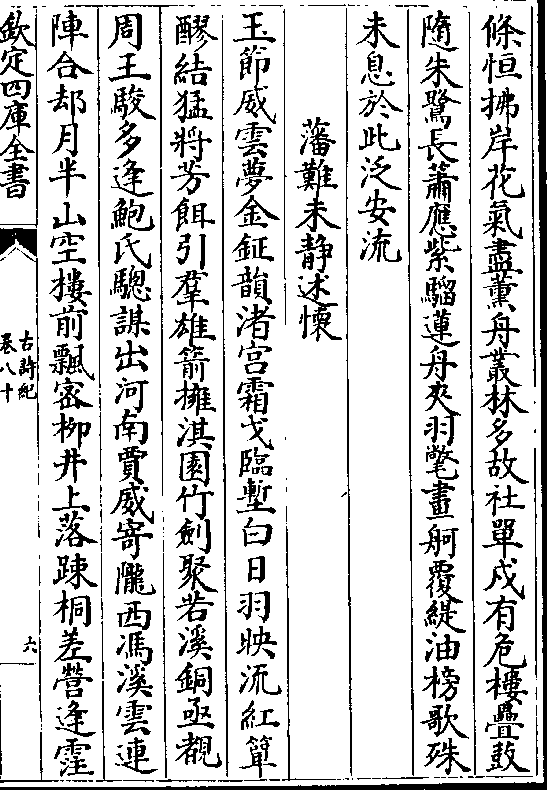 條恒拂岸花氣盡薰舟叢林多故社單戍有危樓疊鼓
隨朱鷺長簫應紫騮蓮舟夾羽氅畫舸覆緹油榜歌殊
未息於此泛安流
藩難未靜述懷
玉節威雲夢金鉦韻渚宫霜戈臨塹白日羽映流紅單
醪結猛將芳餌引羣雄箭擁淇園竹劍聚若溪銅亟覩
周王駿多逢鮑氏驄謀出河南賈威寄隴西馮溪雲連
陣合却月半山空樓前飄密柳井上落踈桐差營逢霪
欽定四庫全書
古詩紀
卷八十
六